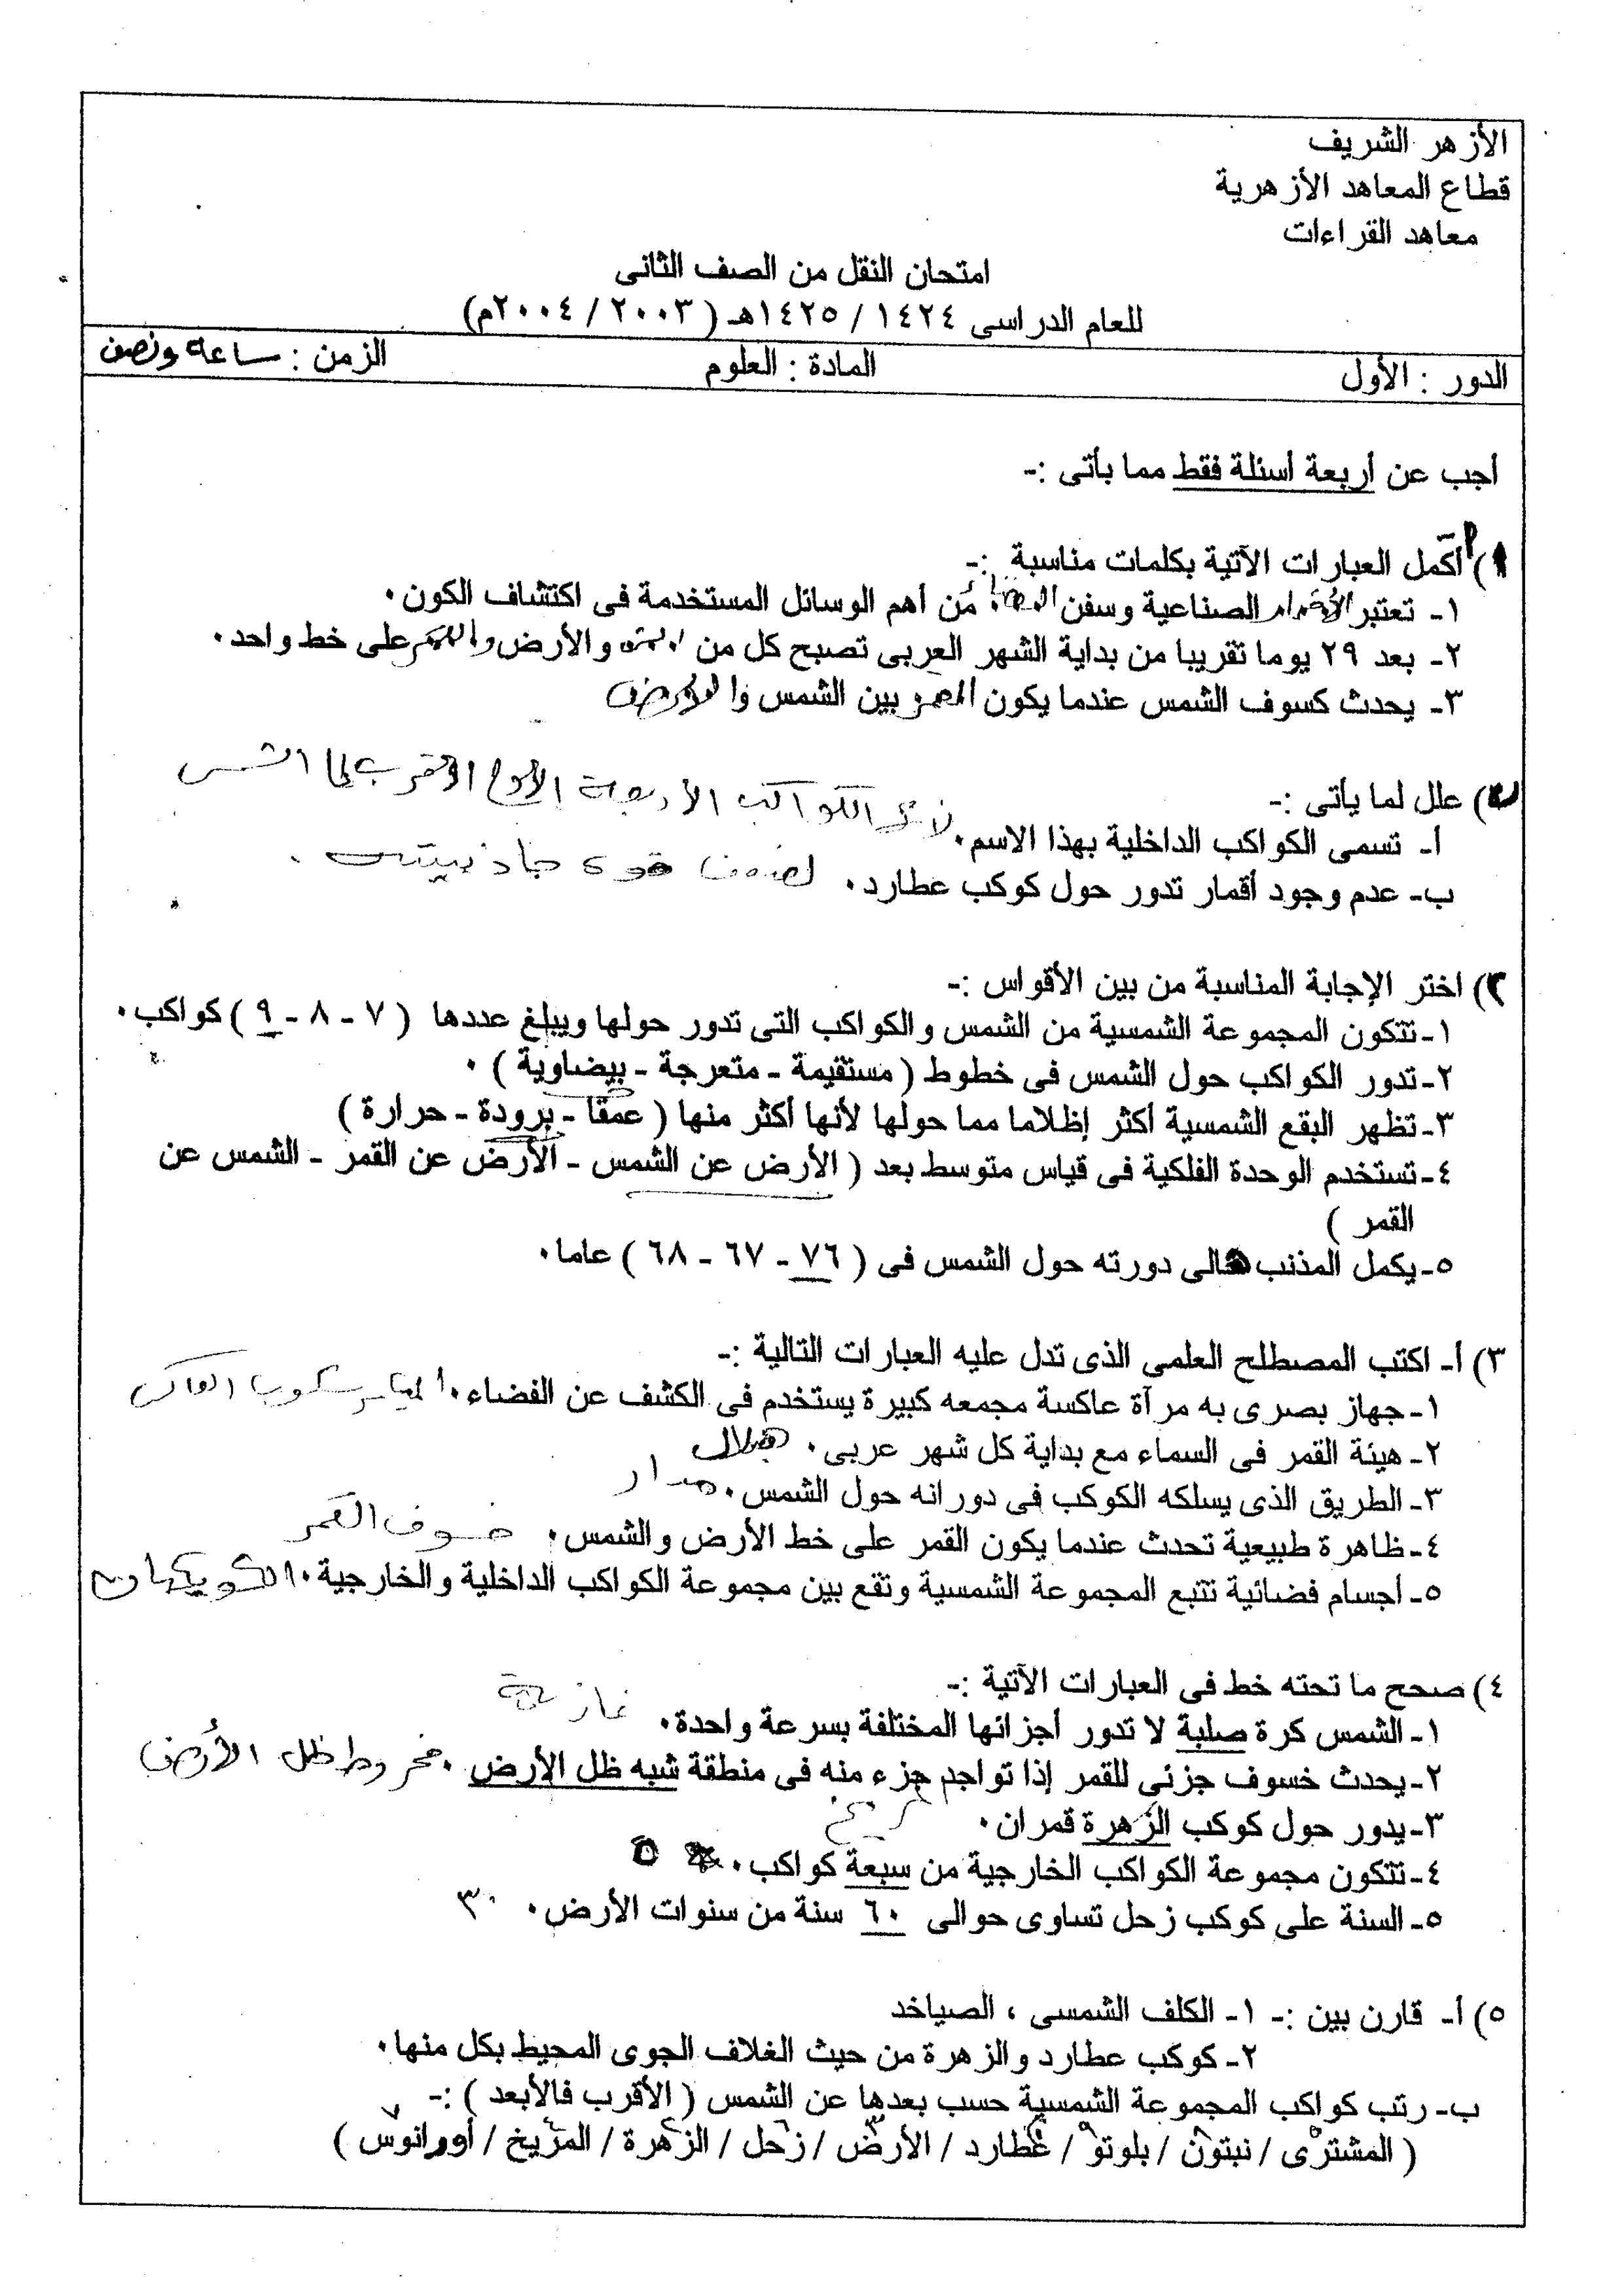 الأزهر الشريف
قطاع المعاهد الأزهرية
معاهد القراءات
امتحان النقل من الصف الثانى
للعام الدراسى ١٤٢٤ / ١٤٢٥هـ ( ٢٠٠٣ / ٢٠٠٤م)
الدور : الأول المادة : العلوم الزمن : ساعة ونصف
أجب عن أربعة أسئلة فقط مما يأتى :-
١) أ أكمل العبارات الآتية بكلمات مناسبة :-
١- تعتبر الأقمار الصناعية وسفن الفضاء من أهم الوسائل المستخدمة فى اكتشاف الكون.
٢- بعد ٢٩ يوما تقريبا من بداية الشهر العربى تصبح كل من الشمس والأرض والقمر على خط واحد.
٣- يحدث كسوف الشمس عندما يكون القمر بين الشمس والأرض
ب) علل لما يأتى :-
أ- تسمى الكواكب الداخلية بهذا الاسم. الكواكب الأربعة الأقرب إلى الشمس
ب- عدم وجود أقمار تدور حول كوكب عطارد. لضعف قوة جاذبيته.
٢) اختر الإجابة المناسبة من بين الأقواس :-
١-تتكون المجموعة الشمسية من الشمس والكواكب التى تدور حولها ويبلغ عددها ( ٧ - ٨ - ٩ ) كواكب.
٢-تدور الكواكب حول الشمس فى خطوط ( مستقيمة - متعرجة - بيضاوية ) .
٣-تظهر البقع الشمسية أكثر إظلاما مما حولها لأنها أكثر منها ( عمقا - برودة - حرارة )
٤-تستخدم الوحدة الفلكية فى قياس متوسط بعد ( الأرض عن الشمس - الأرض عن القمر - الشمس عن
القمر )
٥-يكمل المذنب هالى دورته حول الشمس فى ( ٧٦ - ٦٧ - ٦٨ ) عاما.
٣) أ- اكتب المصطلح العلمى الذى تدل عليه العبارات التالية :-
١-جهاز بصرى به مرآة عاكسة مجمعه كبيرة يستخدم فى الكشف عن الفضاء.
٢-هيئة القمر فى السماء مع بداية كل شهر عربى. هلال
٣-الطريق الذى يسلكه الكوكب فى دورانه حول الشمس. مدار
٤-ظاهرة طبيعية تحدث عندما يكون القمر على خط الأرض والشمس. خسوف القمر
٥-أجسام فضائية تتبع المجموعة الشمسية وتقع بين مجموعة الكواكب الداخلية والخارجية. الكويكبات
٤) صحح ما تحته خط فى العبارات الآتية :-
١-الشمس كرة صلبة لا تدور أجزائها المختلفة بسرعة واحدة. غازية
٢-يحدث خسوف جزئى للقمر إذا تواجد جزء منه فى منطقة شبه ظل الأرض . مخروط ظل الأرض
٣-يدور حول كوكب الزهرة قمران. مريخ
٤-تتكون مجموعة الكواكب الخارجية من سبعة كواكب. ٥
٥-السنة على كوكب زحل تساوى حوالى ٦٠ سنة من سنوات الأرض. ٣٠
٥) أ- قارن بين :- ١- الكلف الشمسى ، الصياخد
٢- كوكب عطارد والزهرة من حيث الغلاف الجوى المحيط بكل منها.
ب- رتب كواكب المجموعة الشمسية حسب بعدها عن الشمس ( الأقرب فالأبعد ) :-
( المشترى / نبتون / بلوتو / عطارد / الأرض / زحل / الزهرة / المريخ / أورانوس )